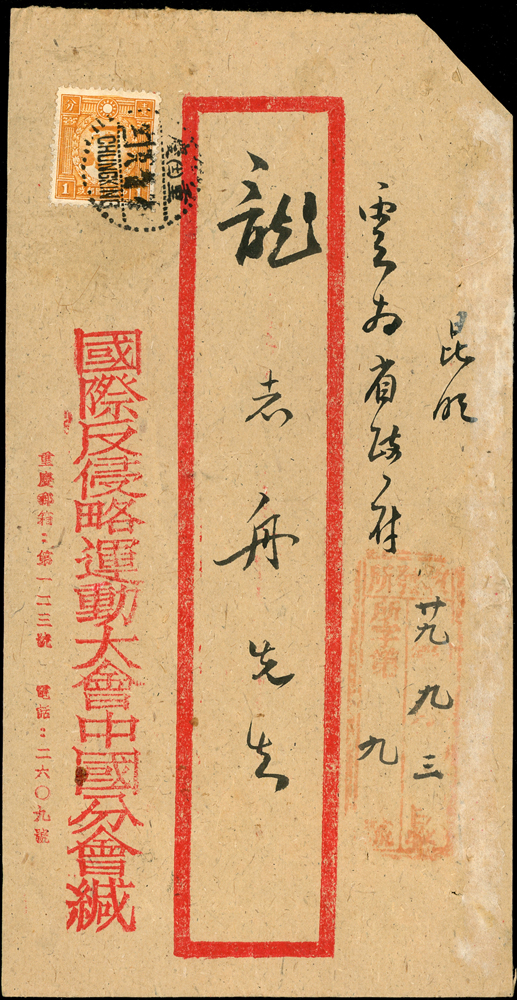 昆明
雲南省政府
廿九 九 三
九
龍志舟先生
國際反侵略運動大會中國分會緘
重慶郵箱：第一二三號 電話：二六〇九號
CHUNGKING
分
1